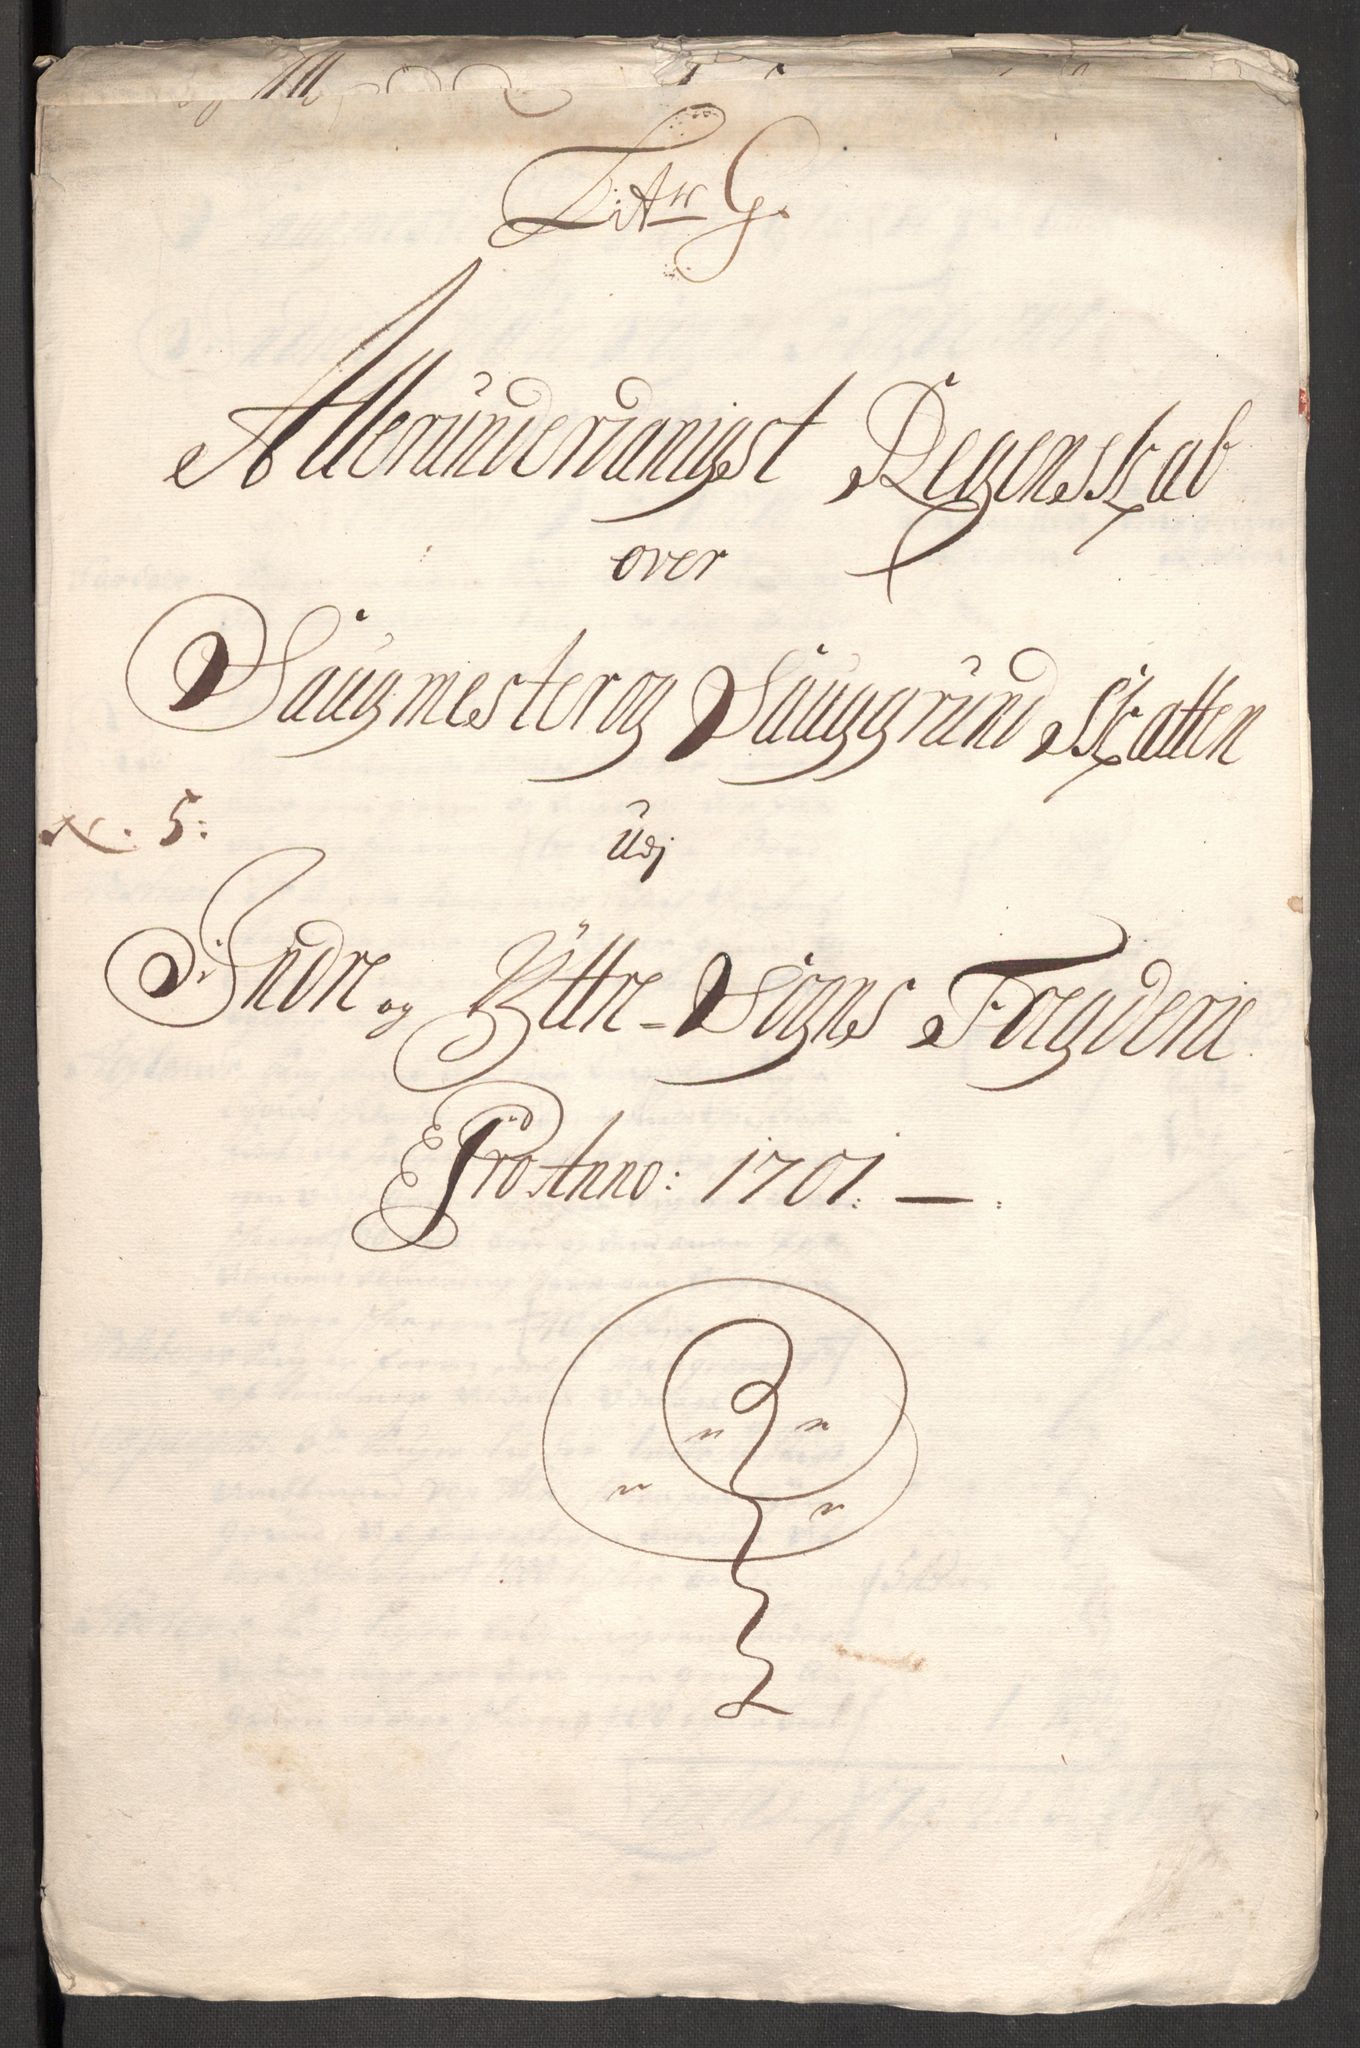 LitA G.
Alleründerdanigst Regenskab
over
Saugmester og Sauggründ Skatten
N. 5:
Udj
Indre og Yttre-Sogns Fogderie
Pro Anno: 1701. —